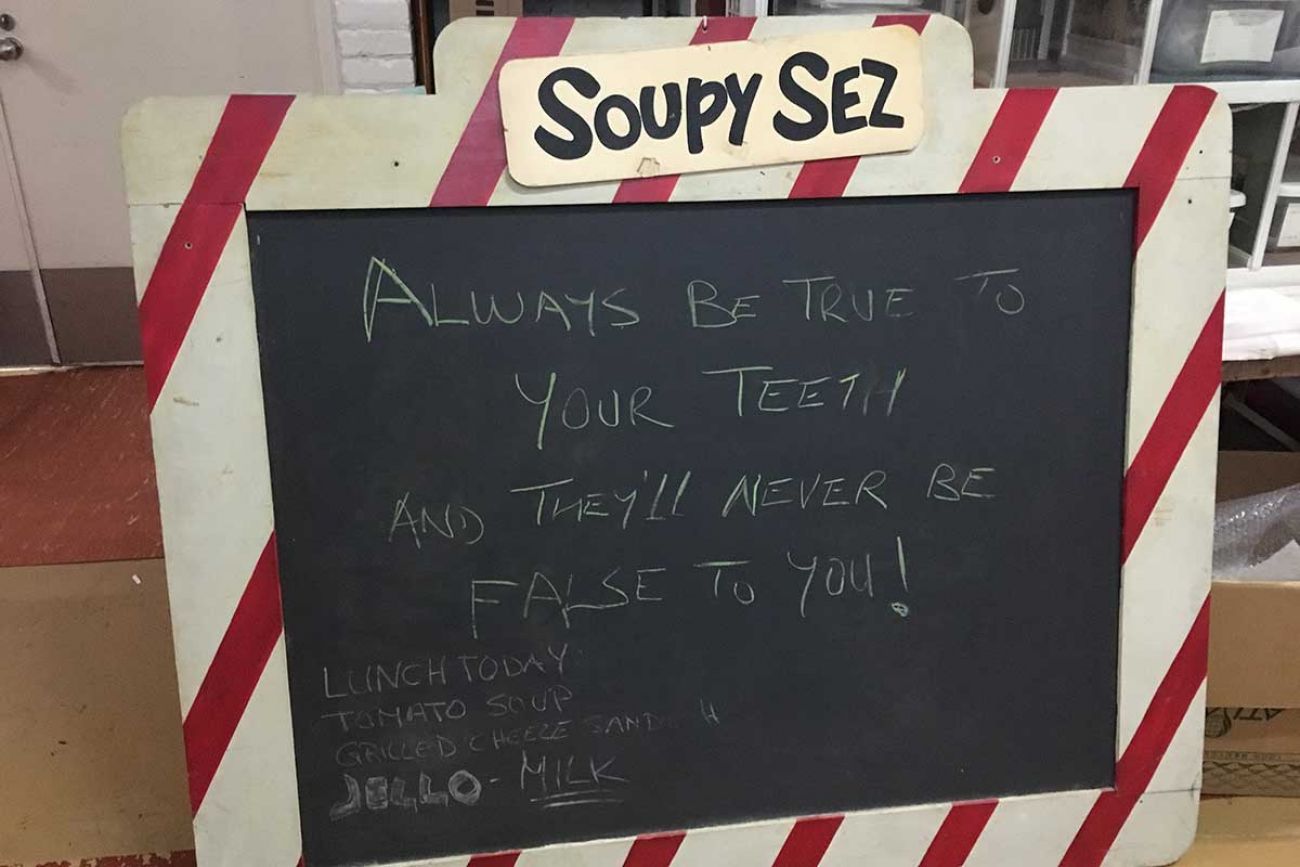 SOUPY SEZ
ALWAYS BE TRUE TO
YOUR TEETH
AND THEY'LL NEVER BE
FALSE TO YOU!
LUNCH TODAY
TOMATO SOUP
GRILLED CHEEZE
JELLO - MILK